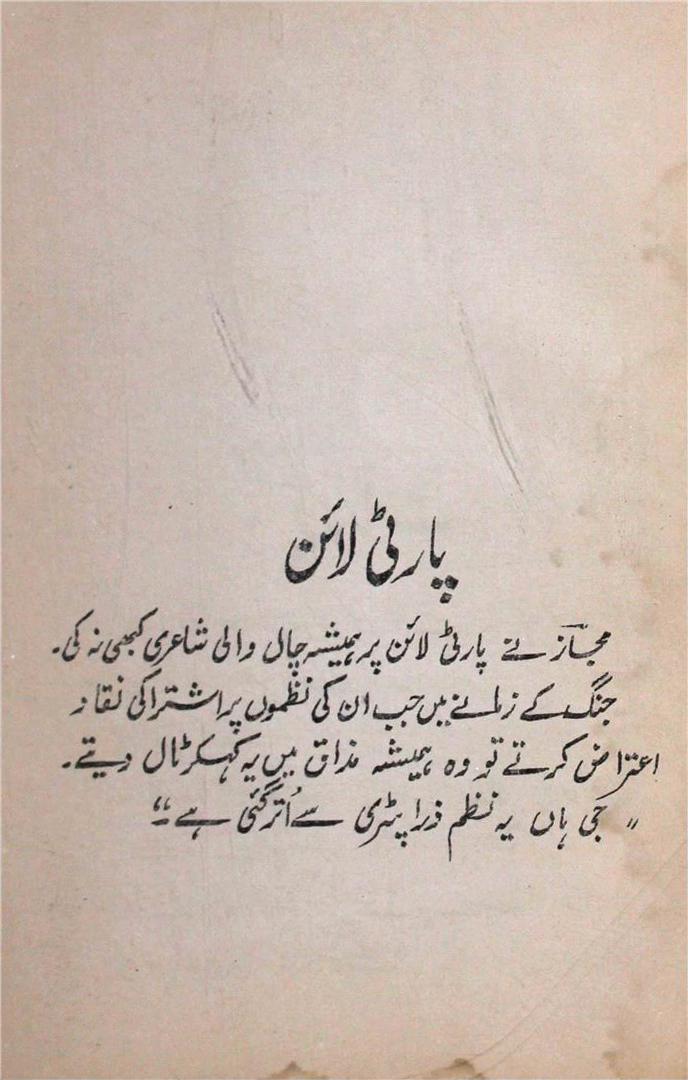 پارٹی لائن
مجاز نے پارٹی لائن پر ہمیشہ چال والی شاعری کبھی نہ کی۔
جنگ کے زمانے میں جب ان کی نظموں پر اشتراکی نقاد
اعتراض کرتے تو وہ ہمیشہ مذاق میں یہ کہکر ٹال دیتے۔
"جی ہاں یہ نظم ذرا پٹری سے اُتر گئی ہے۔"